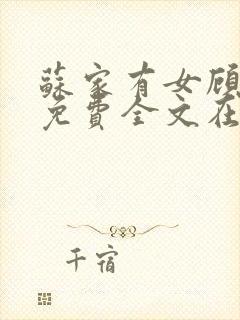 蘇家有女顾
免費全文在
千宿